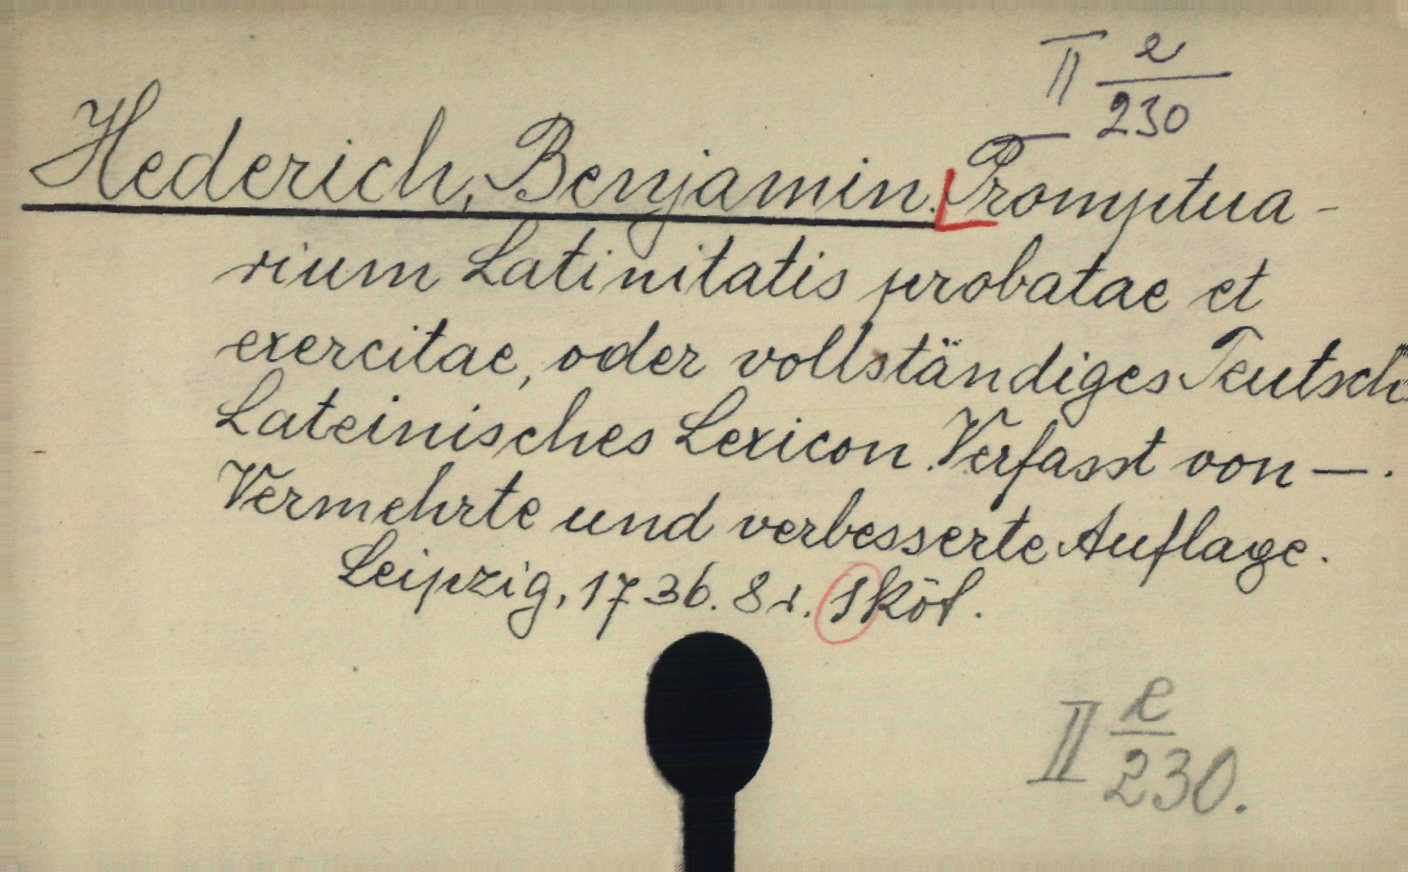 II e/230
Hederich, Benjamin. Promptua-
rium Latinitatis probatae et
exercitae, oder vollständiges Teutsch
Lateinisches Lexicon. Verfasst von —.
Vermehrte und verbesserte Auflage.
Leipzig, 1736. 8r. 1 köt.
II e/230.